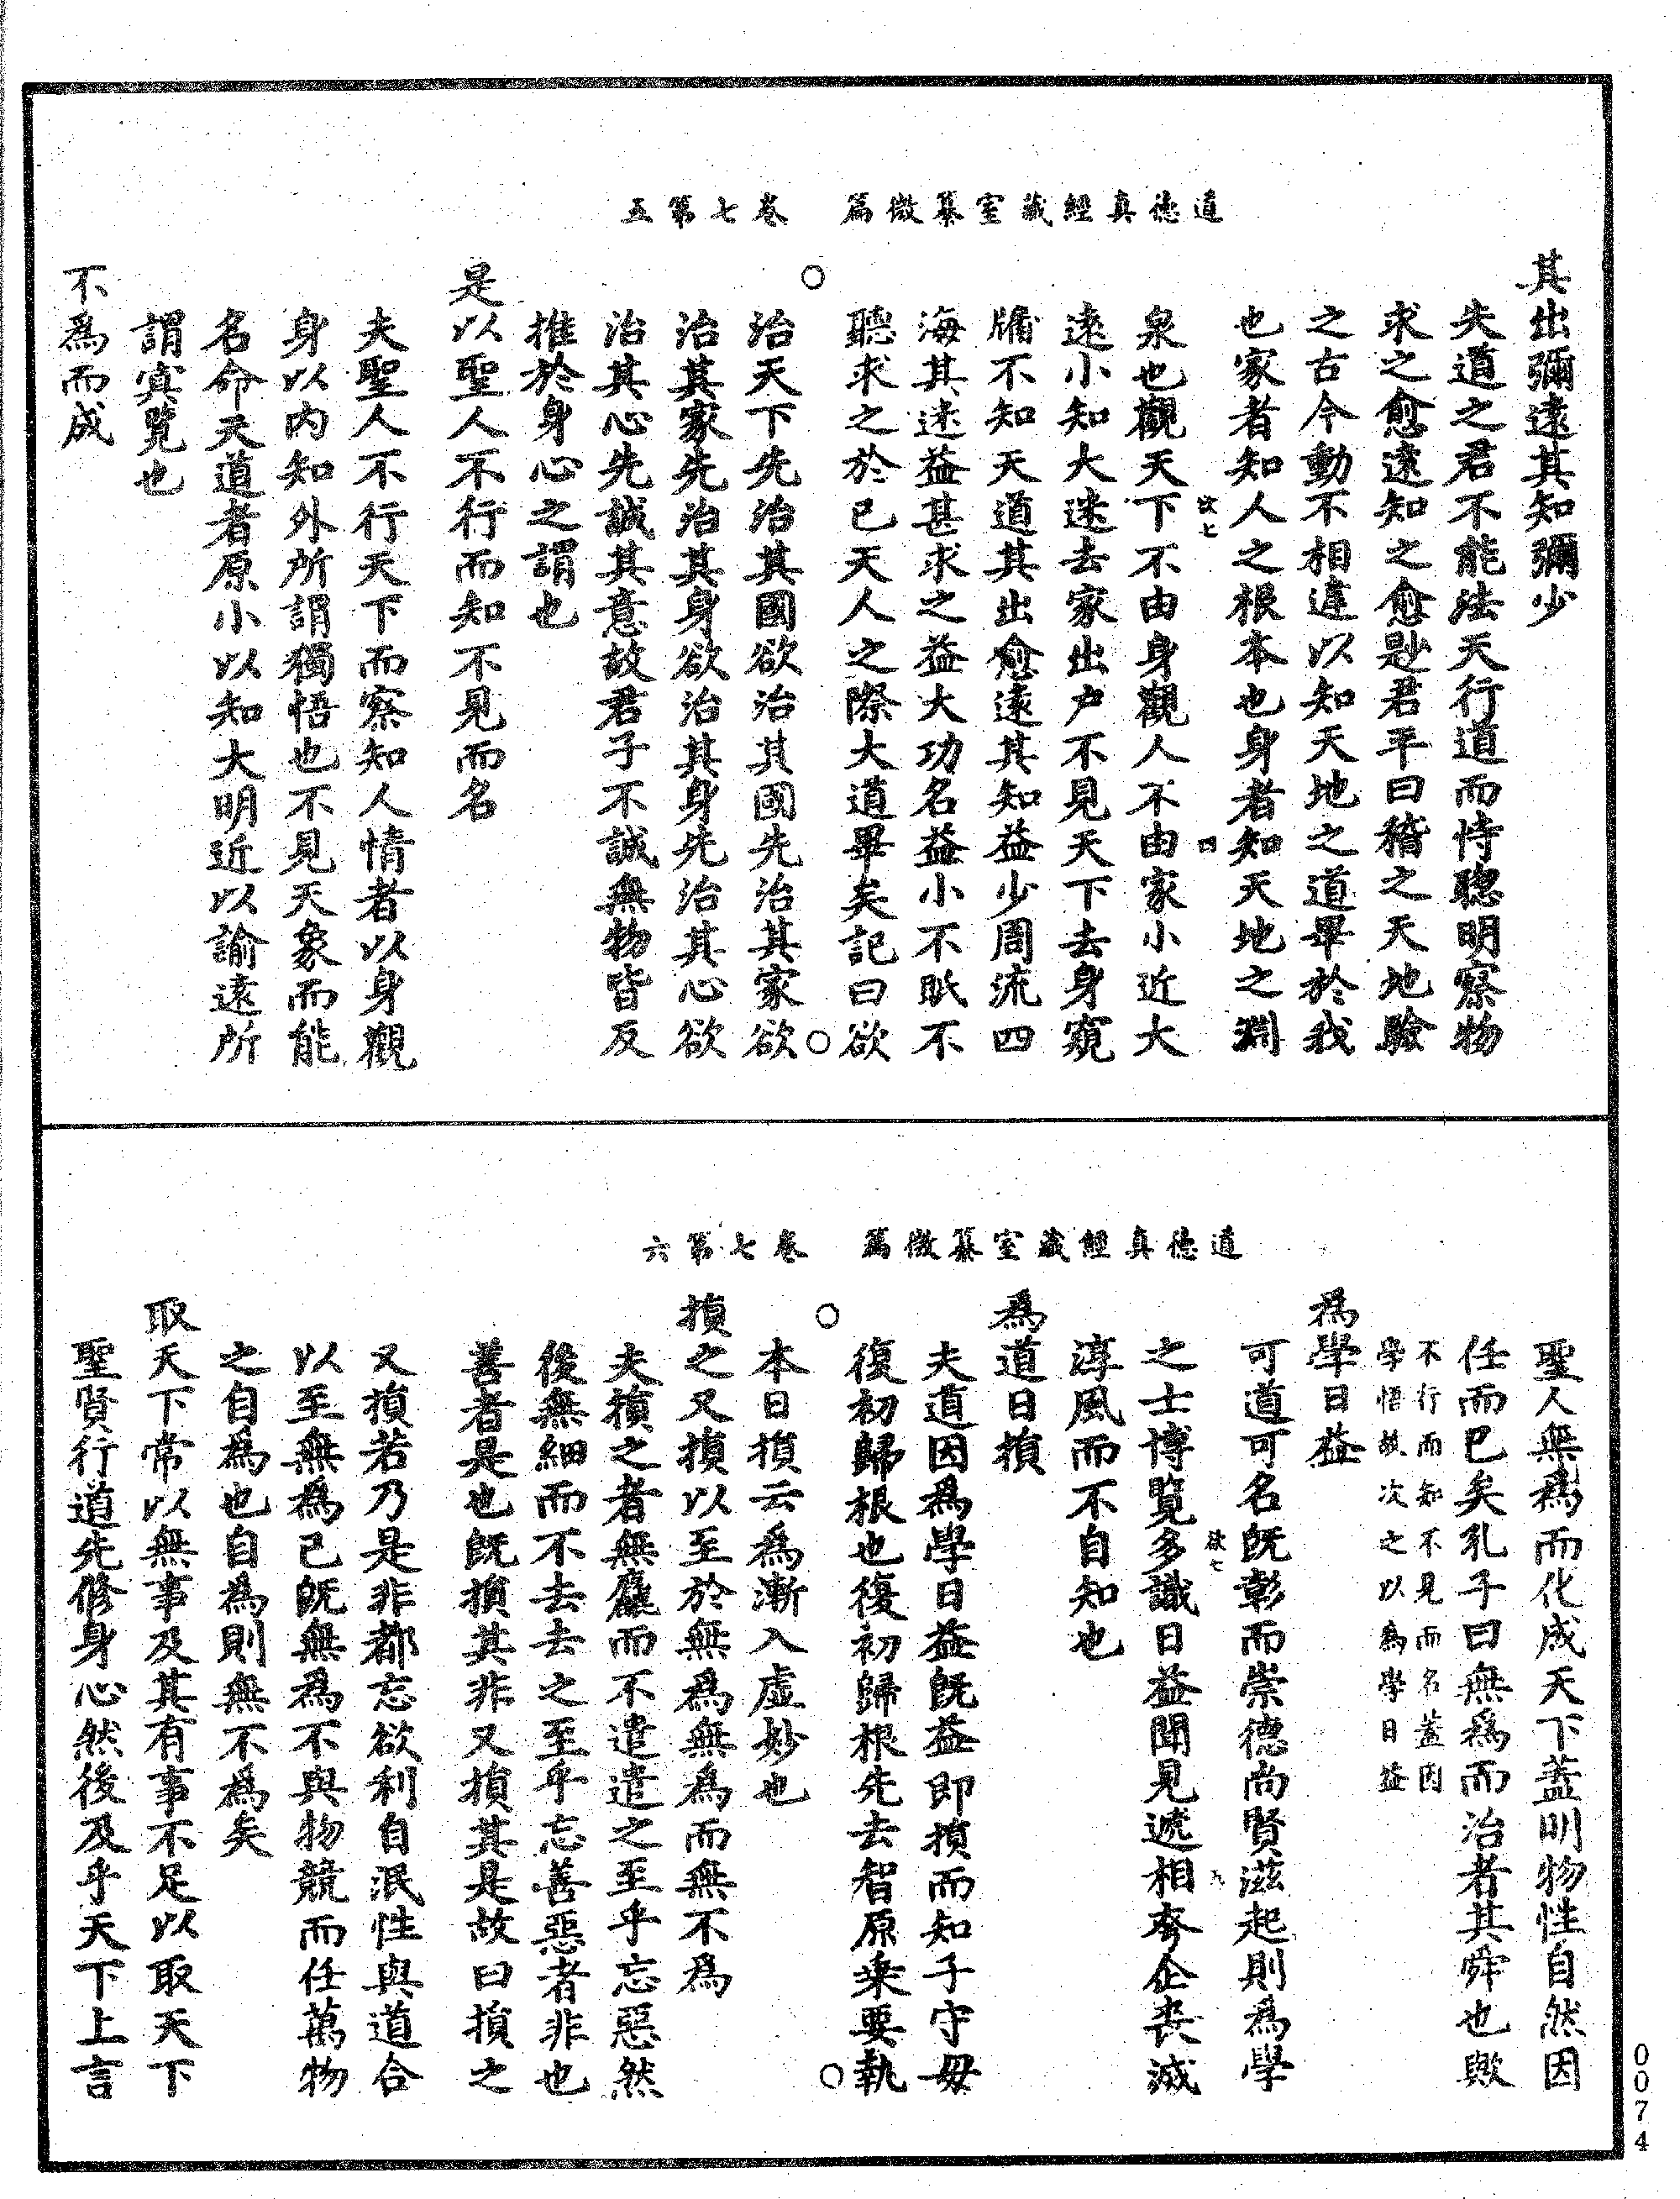 道德真經藏室纂微篇　卷七第五
其出彌遠其知彌少
失道之君不能法天行道而恃聰明察物
求之愈遠知之愈尟君平曰稽之天地驗
之古今動不相違以知天地之道畢於我
也家者知人之根本也身者知天地之淵
欲七
四
泉也觀天下不由身觀人不由家小近大
遠小知大迷去家出戶不見天下去身窺
牖不知天道其出愈遠其知益少周流四
海其迷益甚求之益大功名益小不眂不
聽求之於已天人之際大道畢矣記曰欲
治天下先治其國欲治其國先治其家欲
治其家先治其身欲治其身先治其心欲
治其心先誠其意故君子不誠無物皆反
推於身心之謂也
是以聖人不行而知不見而名
夫聖人不行天下而察知人情者以身觀
身以內知外所謂獨悟也不見天象而能
名命天道者原小以知大明近以諭遠所
謂寞覽也
不爲而成
道德真經藏室纂微篇　卷七第六
聖人無爲而化成天下蓋明物性自然因
任而巳矣孔子曰無爲而治者其舜也歟
不行而知不見而名蓋因
學悟故次之以爲學日益
爲學日益
可道可名旣彰而崇德尚賢滋起則爲學
欲七
之士博覽多識日益聞見遞相夸企喪滅
淳風而不自知也
爲道日損
夫道因爲學日益旣益即損而知子守毋
復初歸根也復初歸根先去智原乘要執
本日損云爲漸入虛妙也
損之又損以至於無爲無爲而無不爲
夫損之者無麤而不遣遣之至乎忘惡然
後無細而不去去之至乎忘善惡者非也
善者是也旣損其非又損其是故曰損之
又損若乃是非都忘欲利自泯性與道合
以至無爲已旣無爲不與物競而任萬物
之自爲也自爲則無不爲矣
取天下常以無事及其有事不足以取天下
聖賢行道先修身心然後及乎天下上言
0074